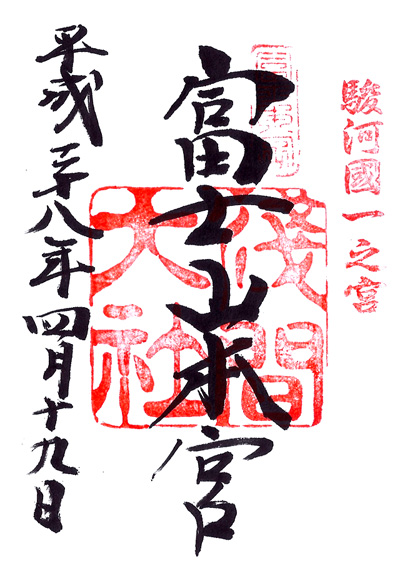 駿河國一之宮
富士山本宮
淺間
大社
平成二十八年四月十九日